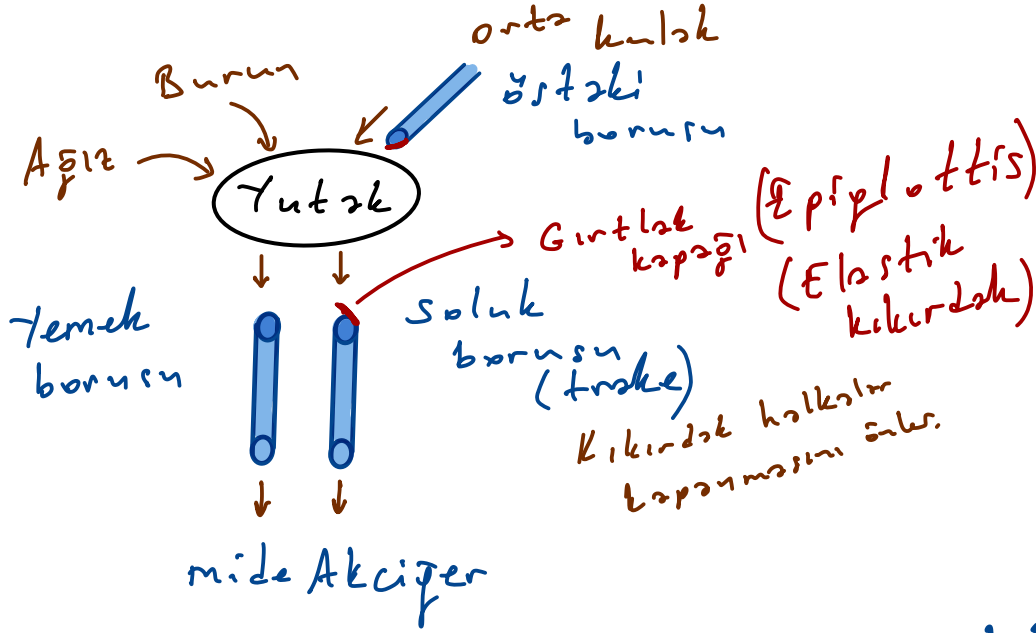 orta kulak
Burun
östaki
borusu
Ağız
Yutak
Gırtlak
kapağı
(Epiglottis)
(Elastik
kıkırdak)
Yemek
borusu
Soluk
borusu
(trake)
Kıkırdak halkalar
kapanmasını önler.
mide Akciğer